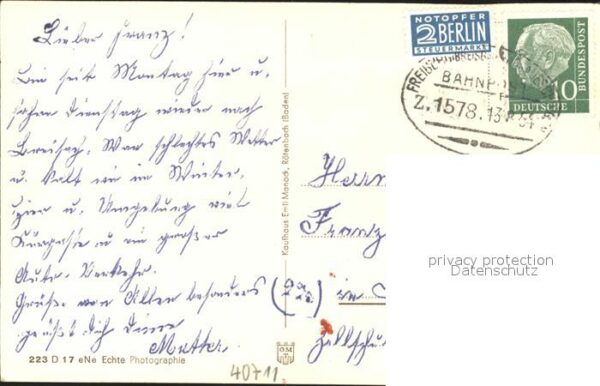 Lieber Franz!
Bin seit Montag hier u.
fahre Dienstag wieder nach
Breisag. War schlechtes Wetter
u. kalt wie im Winter,
hier u. Umgebung viel
Kurgäste u. ein großer
Auto-Verkehr.
Grüße von Allen besonders
grüßt dich Deine
Mutter.
223 D 17 eNe Echte Photographie
Kaufhaus Emil Manock, Rötenbach (Baden)
NOTOPFER
2 BERLIN
STEUERMARKE
DEUTSCHE
BUNDESPOST
10
BAHNPOST
Z.1578
Herrn
Franz
in
privacy protection
Datenschutz
40711